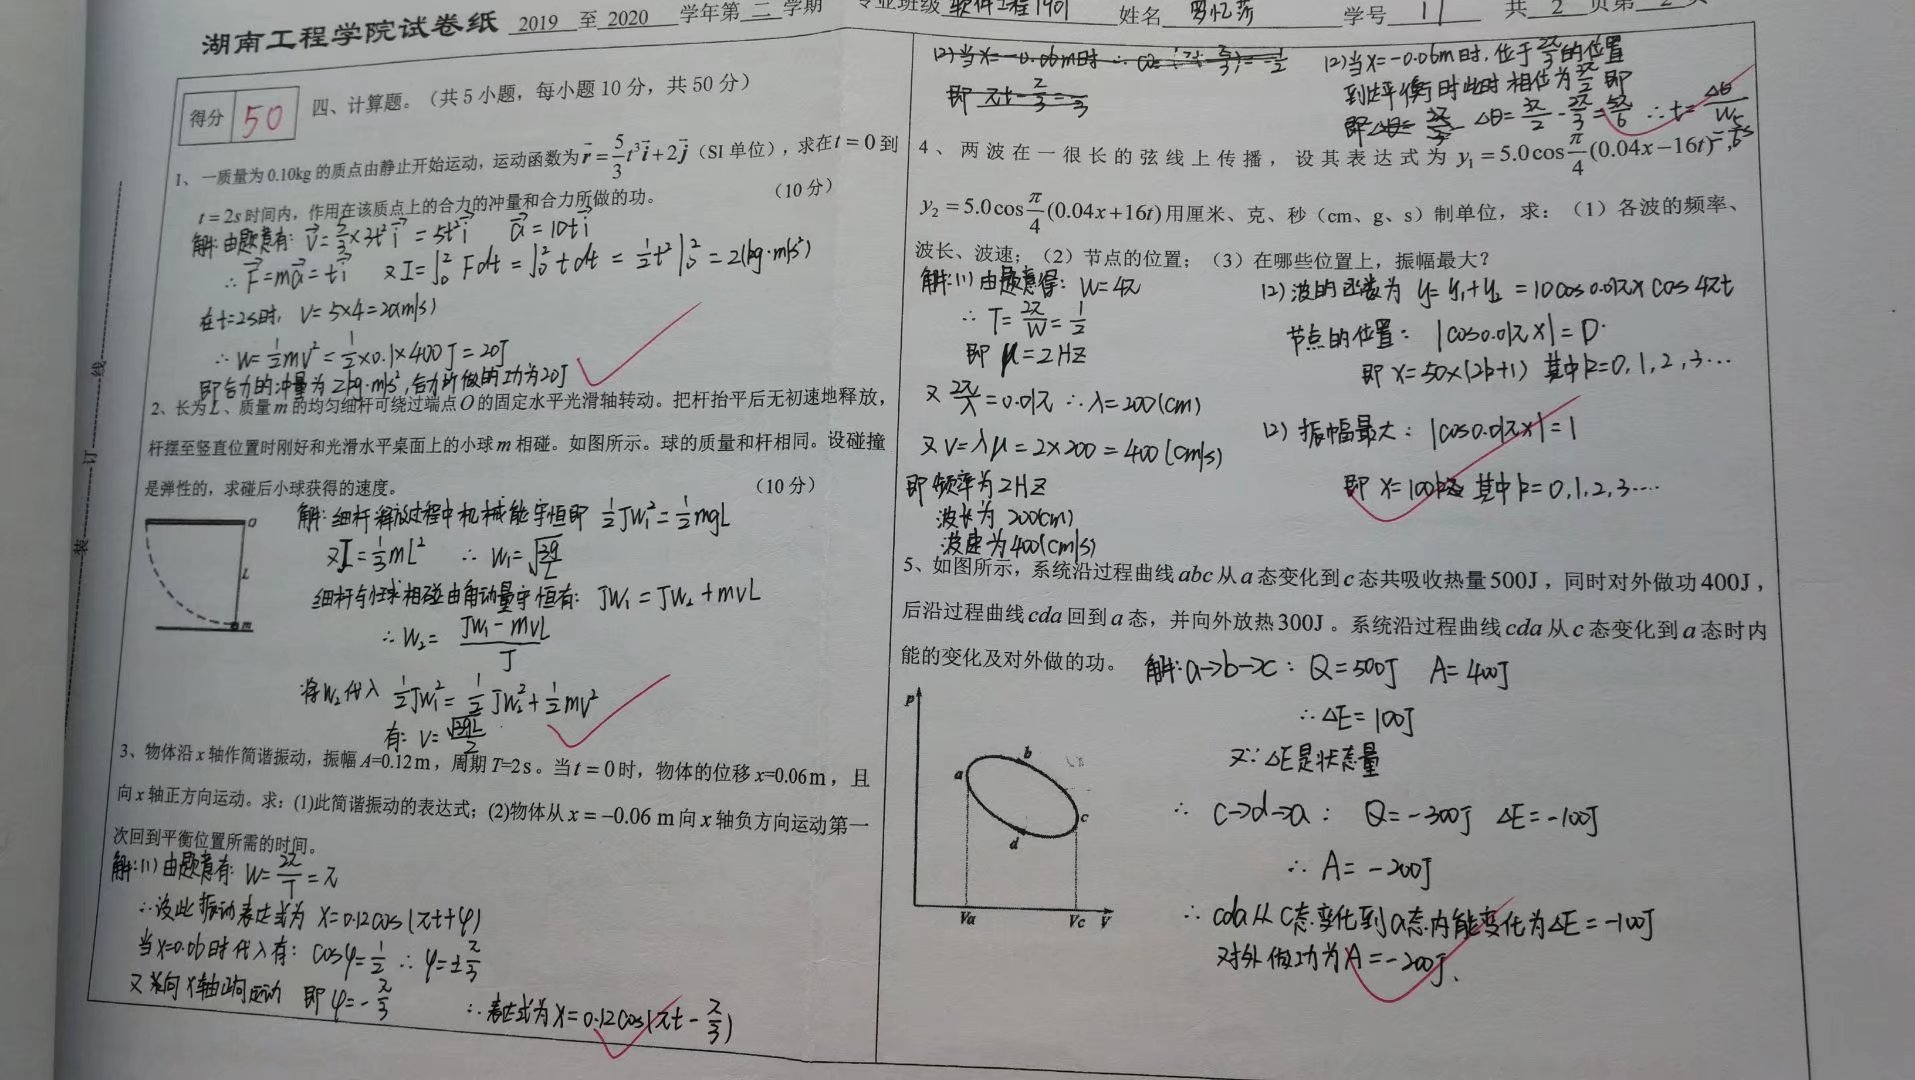 湖南工程学院试卷纸 2019 至 2020 学年第 二 学期 专业班级 软件工程1901 姓名 学号 11 共 2 页第 2 页
得分 50
四、计算题。（共 5 小题，每小题 10 分，共 50 分）
1、一质量为 0.10kg 的质点由静止开始运动，运动函数为 r⃗ = 5/3 t³i⃗ + 2j⃗（SI 单位），求在 t = 0 到
t = 2s 时间内，作用在该质点上的合力的冲量和合力所做的功。 （10 分）
解: 由题意有: v⃗ = 5/3 × 3t² i⃗ = 5t² i⃗ a⃗ = 10t i⃗
∴ F⃗ = ma⃗ = t i⃗ 又 I = ∫₀² Fdt = ∫₀² tdt = 1/2 t² |₀² = 2(kg·m/s²)
在t=2s时, V = 5×4 = 20(m/s)
∴ W = 1/2 mv² = 1/2 × 0.1 × 400 J = 20J
即合力的冲量为 2kg·m/s², 合力所做的功为20J
2、长为 L、质量 m 的均匀细杆可绕过端点 O 的固定水平光滑轴转动。把杆抬平后无初速地释放，
杆摆至竖直位置时刚好和光滑水平桌面上的小球 m 相碰。如图所示。球的质量和杆相同。设碰撞
是弹性的，求碰后小球获得的速度。 （10 分）
O
L
m
解: 细杆释放过程中机械能守恒即 1/2 JW₁² = 1/2 mgL
又J = 1/3 mL² ∴ W₁ = √(3g/L)
细杆与小球相碰由角动量守恒有: JW₁ = JW₂ + mvL
∴ W₂ = (JW₁ - mvL)/J
将W₂代入 1/2 JW₁² = 1/2 JW₂² + 1/2 mv²
有: V = √(3gL)/2
3、物体沿 x 轴作简谐振动，振幅 A=0.12m，周期 T=2s。当 t = 0 时，物体的位移 x=0.06m，且
向 x 轴正方向运动。求：(1)此简谐振动的表达式；(2)物体从 x = −0.06 m 向 x 轴负方向运动第一
次回到平衡位置所需的时间。
解: (1) 由题意有: W = 2π/T = π
∴ 设此振动表达式为 X = 0.12cos(πt+φ)
当X=0.06时代入有: cosφ = 1/2 ∴ φ = ±π/3
又 向X轴正向运动 即 φ = -π/3 ∴ 表达式为 X = 0.12cos(πt - π/3)
(2) 当X=-0.06m时
(2) 当X=-0.06m时, 位于 2π/3 的位置
到达平衡时此时相位为 3π/2 即
Δθ = 3π/2 - 2π/3 = 5π/6 ∴ t = Δθ/W = 5/6 s
4、两波在一很长的弦线上传播，设其表达式为 y₁ = 5.0cos π/4 (0.04x−16t)，
y₂ = 5.0cos π/4 (0.04x+16t) 用厘米、克、秒（cm、g、s）制单位，求：（1）各波的频率、
波长、波速；（2）节点的位置；（3）在哪些位置上，振幅最大？
解: (1) 由题意得: W = 4π
∴ T = 2π/W = 1/2
即 μ = 2HZ
又 2π/λ = 0.01π ∴ λ = 200(cm)
又 V = λμ = 2×200 = 400(cm/s)
即频率为 2HZ
波长为 200(cm)
波速为 400(cm/s)
(2) 波的函数为 y = y₁+y₂ = 10cos0.01πx cos4πt
节点的位置: |cos0.01πx| = 0.
即 x = 50×(2k+1) 其中k=0,1,2,3…
(2) 振幅最大: |cos0.01πx| = 1
即 x = 100k 其中k=0,1,2,3…
5、如图所示，系统沿过程曲线 abc 从 a 态变化到 c 态共吸收热量 500J，同时对外做功 400J，
后沿过程曲线 cda 回到 a 态，并向外放热 300J。系统沿过程曲线 cda 从 c 态变化到 a 态时内
能的变化及对外做的功。
解: a→b→c: Q = 500J A = 400J
∴ ΔE = 100J
又∵ ΔE是状态量
∴ c→d→a: Q = -300J ΔE = -100J
∴ A = -200J
∴ cda从c态变化到a态内能变化为ΔE = -100J
对外做功为A = -200J.
P
a
b
c
d
Va
Vc
V
装 订 线